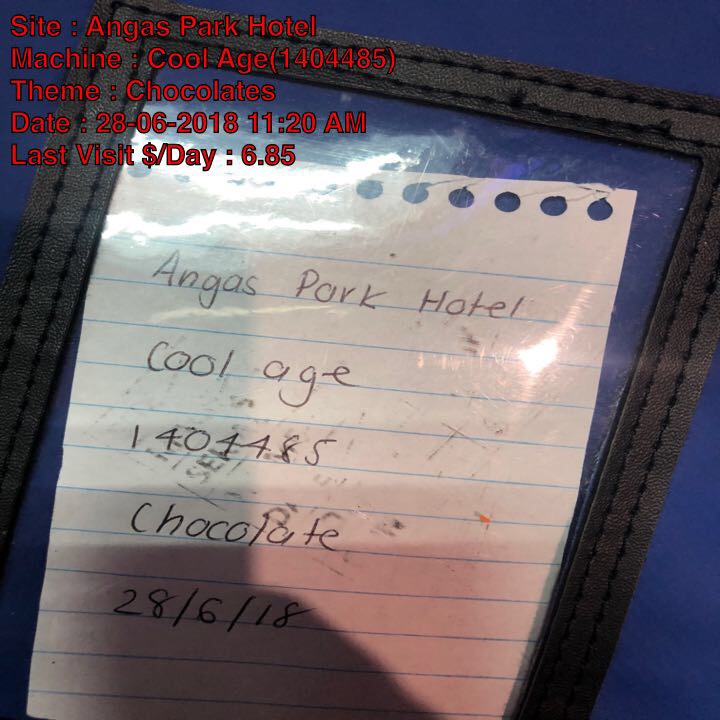 Site : Angas Park Hotel
Machine : Cool Age(1404485)
Theme : Chocolates
Date : 28-06-2018 11:20 AM
Last Visit $/Day : 6.85
Angas Park Hotel
Cool age
1404485
Chocolate
28/6/18